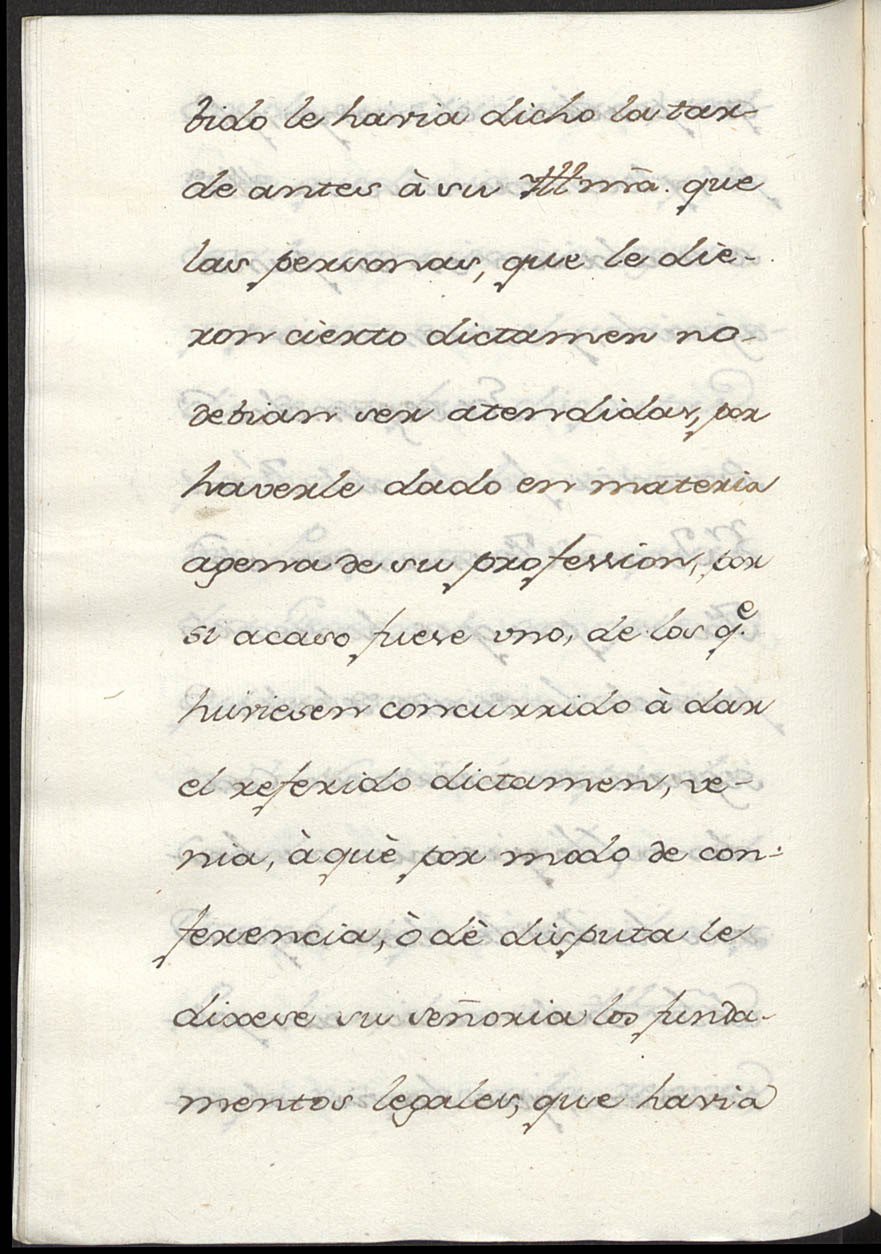 bido le havia dicho la tar-
de antes à su Illmâ. que
las personas, que le die-
ron cierto dictamen no-
debian ser atendidas, por
haverle dado en materia
agena de su profession, por
si acaso fuese vno, de los q.e
huviesen concurrido à dar
el referido dictamen, ve-
nia, à què por modo de con-
ferencia, ò dè disputa le
dixese su señoria los funda-
mentos legales, que havia